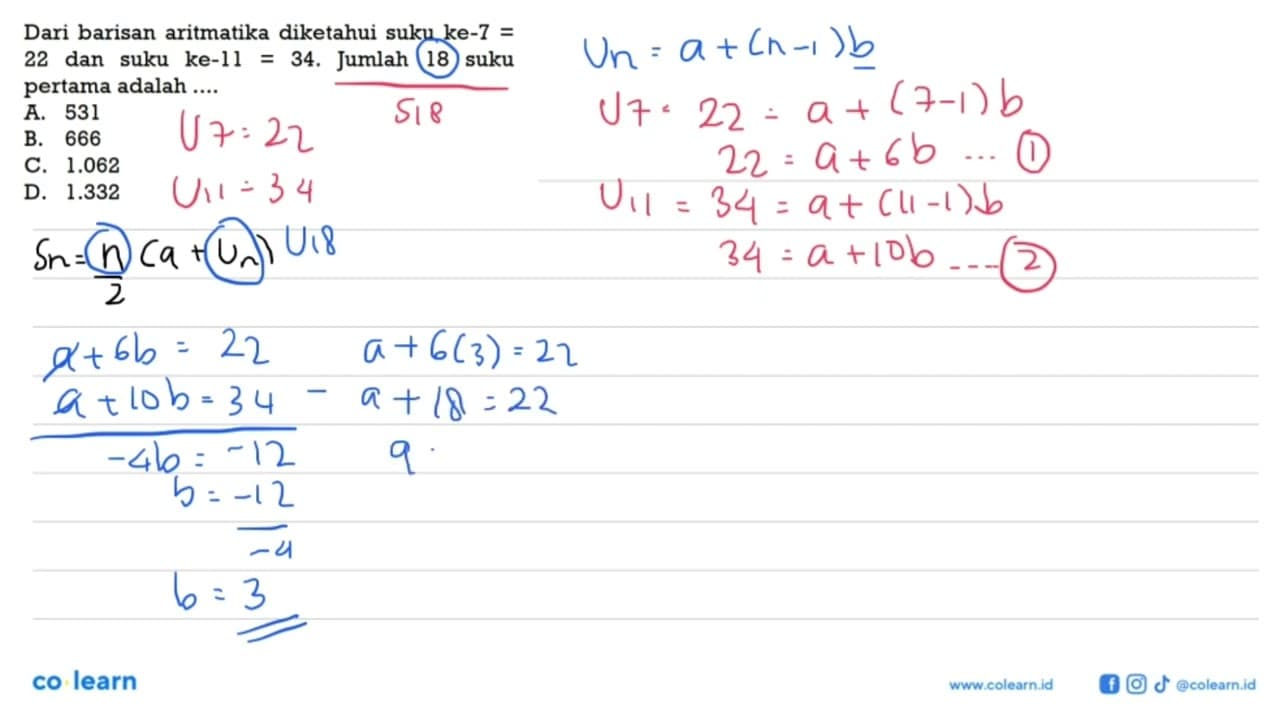 Dari barisan aritmatika diketahui suku ke-7 =
22 dan suku ke-11 = 34. Jumlah 18 suku
pertama adalah ....
A. 531
B. 666
C. 1.062
D. 1.332
S18
U7 = 22
U11 = 34
Sn = n/2 (a + Un) U18
Un = a + (n-1)b
U7 = 22 = a + (7-1)b
22 = a + 6b ... 1
U11 = 34 = a + (11-1)b
34 = a + 10b ---- 2
a + 6b = 22
a + 10b = 34 -
-4b = -12
b = -12
-4
b = 3
a + 6(3) = 22
a + 18 = 22
a
co learn
www.colearn.id
@colearn.id